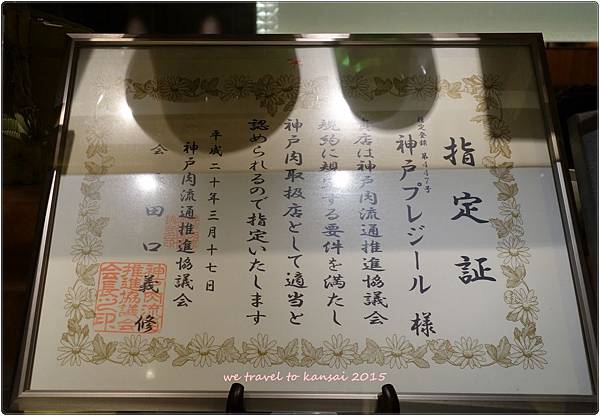 指定証
指定登録 第447号
神戸プレジール 様
貴店は神戸肉流通推進協議会
規約に規定する要件を満たし
神戸肉取扱店として適当と
認められるので指定いたします
平成二十年三月十七日
神戸肉流通推進協議会
会 田口 義修
神戸肉流通
推進協議会
会長之印
we travel to kansai 2015